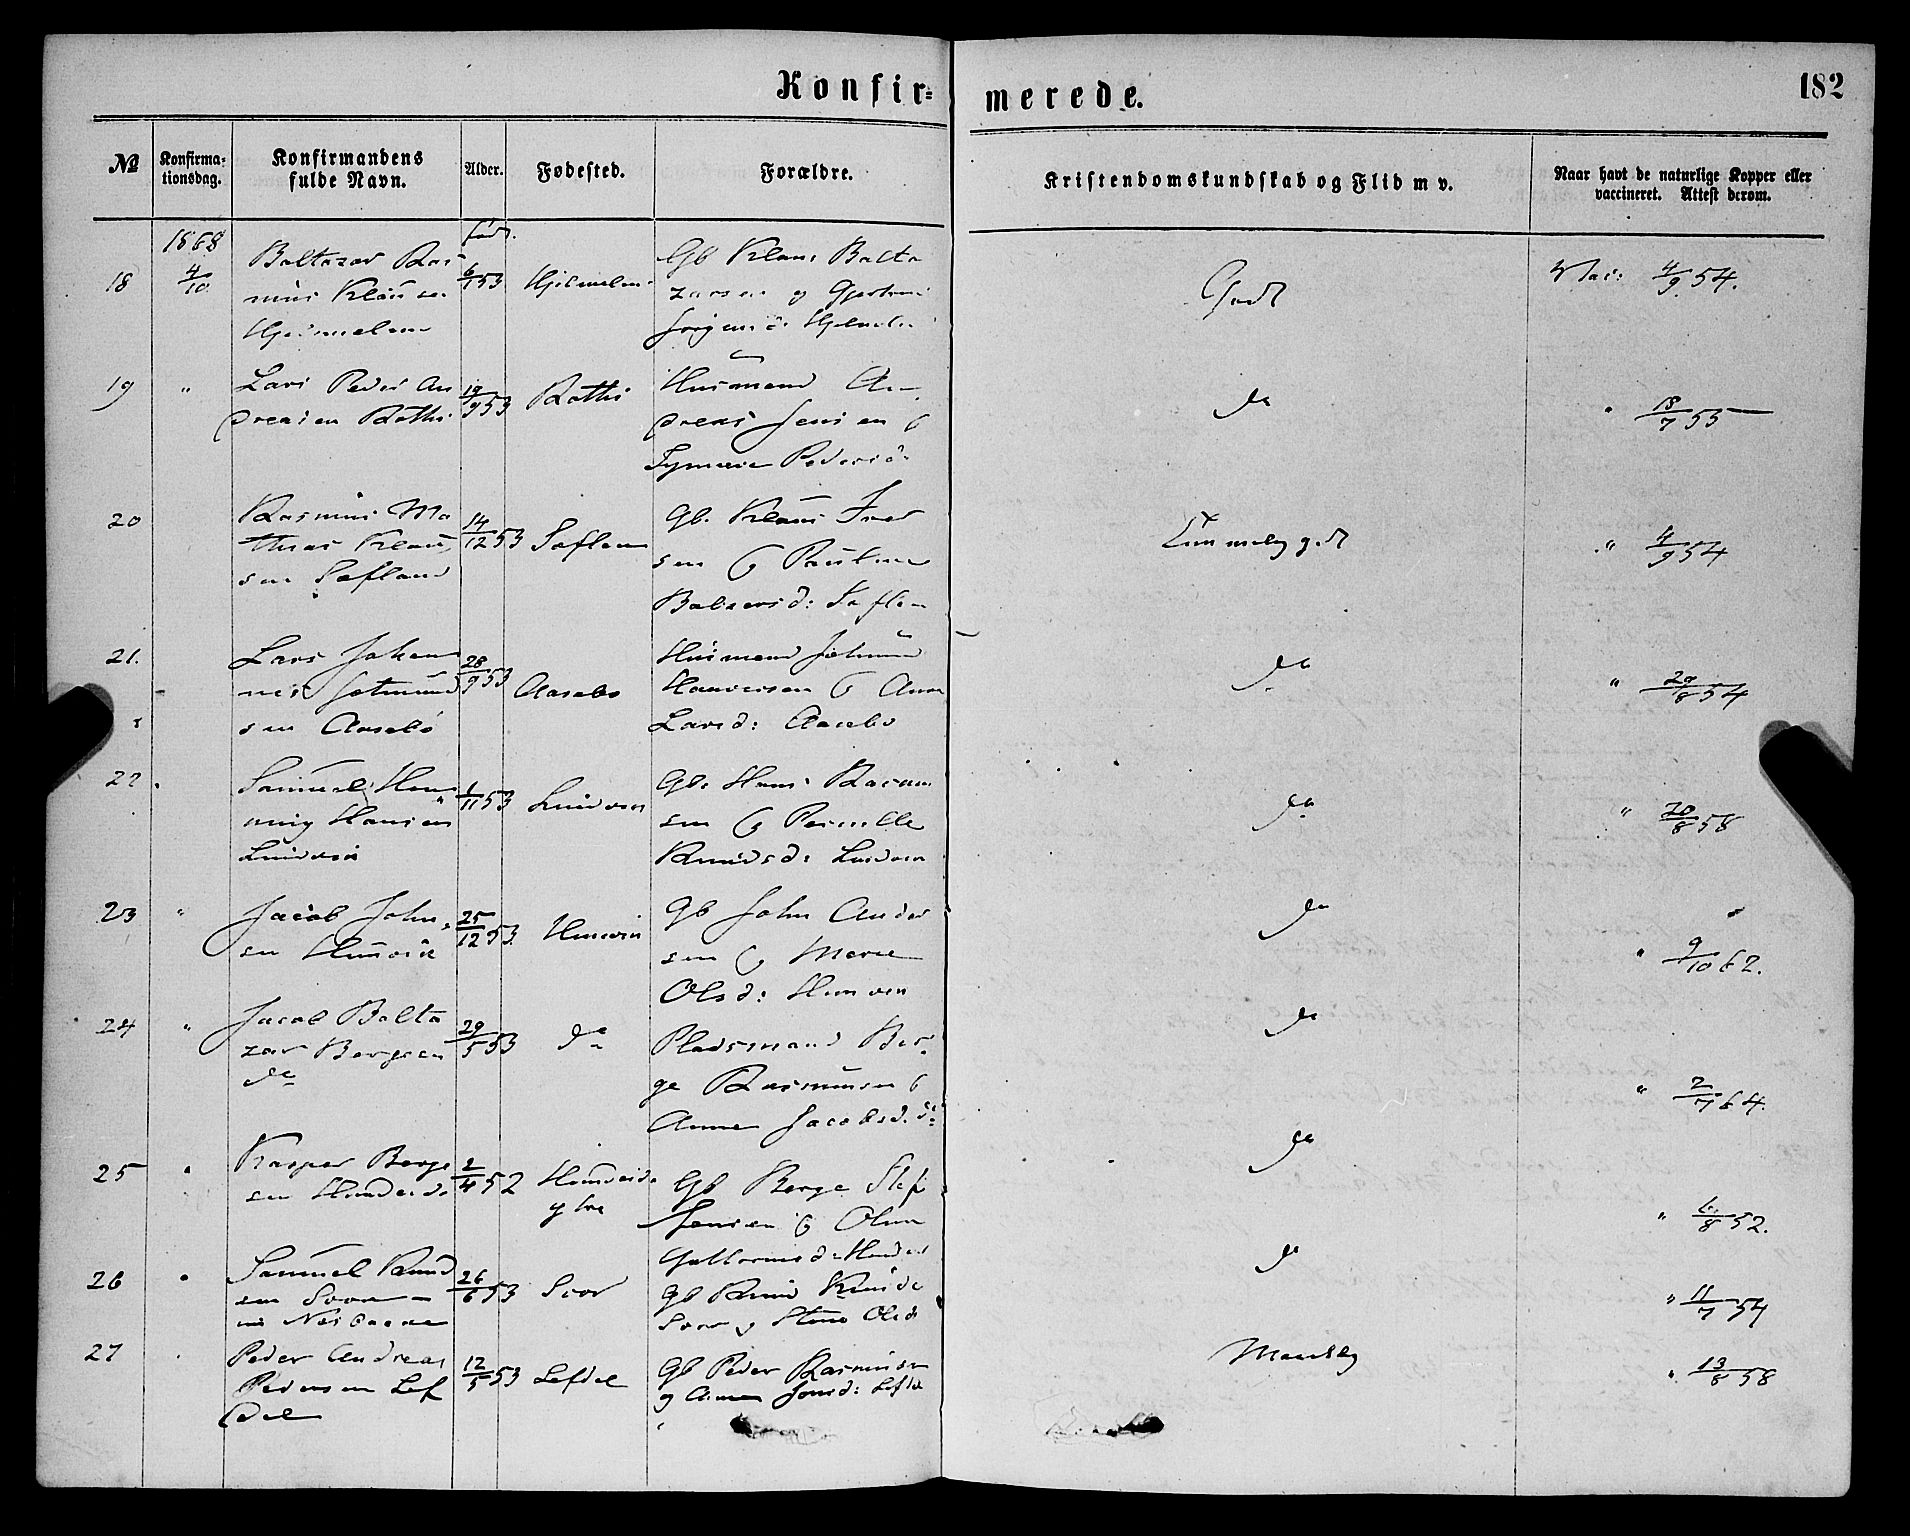 Konfir=
merede.
182
№
Konfirma=
tionsdag.
Konfirmandens
fulde Navn.
Alder.
Fødested.
Forældre.
Kristendomskundskab og Flid m v.
Naar havt de naturlige Kopper eller
vaccineret. Attest derom.
1868
født.
18
4/10
Baltazar Ras
mus Klausen
Hjelmelen
6/1 53
Hjelmelen
Gb Klaus Balta
zarsen og
Godt
Vac: 4/9 54.
19
"
Lars Peder An
dreasen Rothi
19/9 53
Rothi
Husmand An-
dreas Jensen &
Pedersd:
do
" 18/7 55
20
Rasmus Ma
thias Klau
sen Sefland
14/12 53
Seflan
Gb. Klaus Iver
sen & Pauline
Balzersd: Seflan
Temmelig godt
" 4/9 54
21.
Lars Johan
nes Jetmund
sen Aasebö
28/9 53
Aasebo
Husmand Jetmund
& Anna
Larsd: Aasebo
do
" 29/8 54
22.
Samuel Hen
ning Hansen
Lundvik
1/11 53
Gb. Hans Rasmus
sen & Pernille
Knudsd:
do
" 20/8 58
23
"
Jacob John
sen Husevik
25/12 53
Gb John Ander
sen & Marie
Olsd:
do
" 9/10 62.
24
"
Jacob Balta
zar Bergsen
do
29/5 53
do
Pladsmand Ber
ge Rasmussen &
Anne Jacobsd. do
do
" 2/7 64.
25
"
Kasper Berge
sen Hundeide
2/4 52
Hundeide
ytre
Gb Berge Stef
Jensen & Oline
do
" 6/8 52.
26
"
Samuel Knud
sen Soor
26/6 53
Soor
Gb Knud Knuds
Soor og Olsd
do
" 11/7 54
27
Peder Andreas
Pedersen Lef
del
12/5 53
Lefdal
Gb Peder Rasmusen
og Anne Jonsd: Lefdal
Maadelig
" 13/8 58